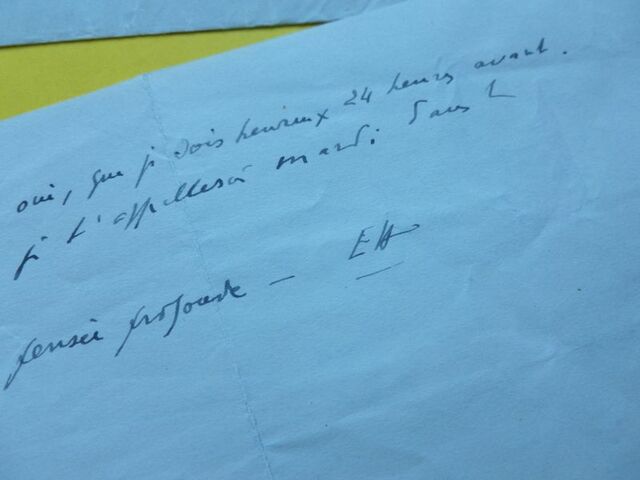 oui, que je sois heureux 24 heures avant.
je t'appellerai mardi dans l
pensée profonde — EH